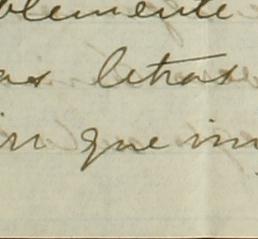 blemente
as letras
in que im